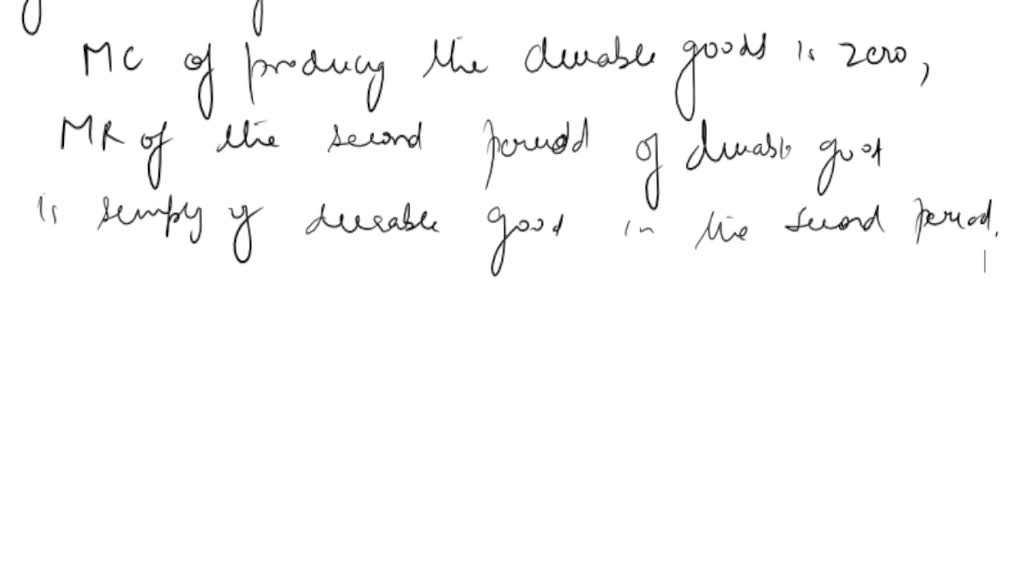 MC of producing the durable goods is zero,
MR of the second period of durable good
is simply of durable good in the second period.